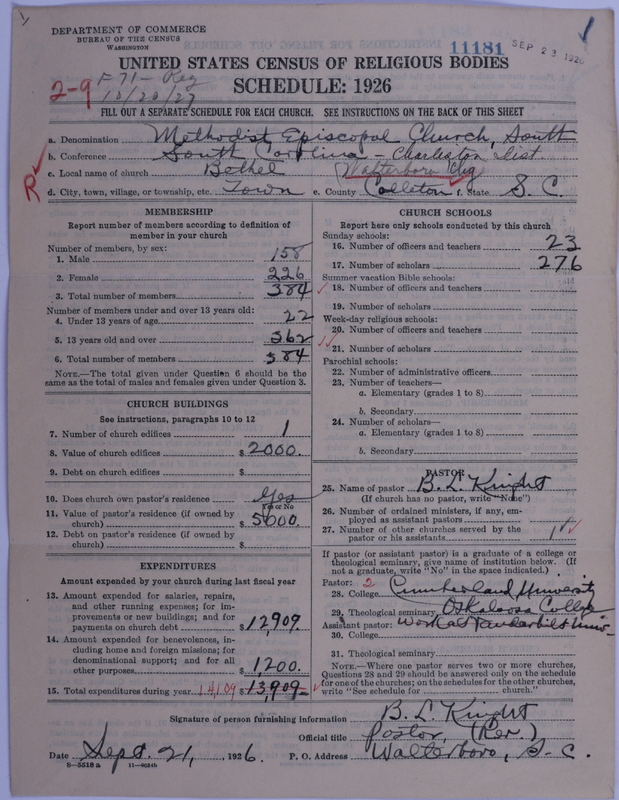 DEPARTMENT OF COMMERCE
BUREAU OF THE CENSUS
WASHINGTON
11181 SEP 23 1926
UNITED STATES CENSUS OF RELIGIOUS BODIES
SCHEDULE: 1926
2-9
F71- Reg
10/20/27
FILL OUT A SEPARATE SCHEDULE FOR EACH CHURCH. SEE INSTRUCTIONS ON THE BACK OF THIS SHEET
a. Denomination Methodist Episcopal Church, South
b. Conference South Carolina - Charleston Dist
R
c. Local name of church Bethel Walterboro Chg
d. City, town, village, or township, etc. Town e. County Colleton f. State S. C.
MEMBERSHIP
Report number of members according to definition of member in your church
Number of members, by sex:
1. Male 158
2. Female 226
3. Total number of members 384
Number of members under and over 13 years old:
4. Under 13 years of age 22
5. 13 years old and over 362
6. Total number of members 384
NOTE.—The total given under Question 6 should be
same as the total of males and females given under Question 3.
CHURCH BUILDINGS
See instructions, paragraphs 10 to 12
7. Number of church edifices 1
8. Value of church edifices $ 2000.
9. Debt on church edifices $
10. Does church own pastor's residence Yes
Yes or No
11. Value of pastor's residence (if owned by
church) $ 5000.
12. Debt on pastor's residence (if owned by
church) $
EXPENDITURES
Amount expended by your church during last fiscal year
13. Amount expended for salaries, repairs,
and other running expenses; for im-
provements or new buildings; and for
payments on church debt $ 12,909.
14. Amount expended for benevolences, in-
cluding home and foreign missions; for
denominational support; and for all
other purposes 1,200.
15. Total expenditures during year 14,109 $ 13,909
CHURCH SCHOOLS
Report here only schools conducted by this church
Sunday schools:
16. Number of officers and teachers 23
17. Number of scholars 276
Summer vacation Bible schools:
18. Number of officers and teachers
19. Number of scholars
Week-day religious schools:
20. Number of officers and teachers
21. Number of scholars
Parochial schools:
22. Number of administrative officers
23. Number of teachers—
a. Elementary (grades 1 to 8)
b. Secondary
24. Number of scholars—
a. Elementary (grades 1 to 8)
b. Secondary
PASTOR
25. Name of pastor B. L. Knight
(If church has no pastor, write "None")
26. Number of ordained ministers, if any, em-
ployed as assistant pastors
27. Number of other churches served by the
pastor or his assistants 1
If pastor (or assistant pastor) is a graduate of a college or
theological seminary, give name of institution below. (If
not a graduate, write "No" in the space indicated.)
Pastor: 2
28. College Cumberland University
29. Theological seminary Oskaloosa College
Assistant pastor: Work at Vanderbilt Univ.
30. College
31. Theological seminary
NOTE.—Where one pastor serves two or more churches,
Questions 28 and 29 should be answered only on the schedule
for one of the churches; on the schedules for the other churches,
write "See schedule for church."
Signature of person furnishing information B. L. Knight
Official title Pastor, (Rev.)
Date Sept. 21, 1926. P. O. Address Walterboro, S. C.
8—5518 a 11—9024b